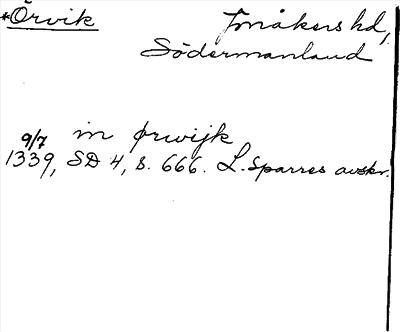 *Örvik
Jönåkers hd,
Södermanland
in ørwijk
9/7
1339, SD 4, s. 666. L. Sparres avskr.